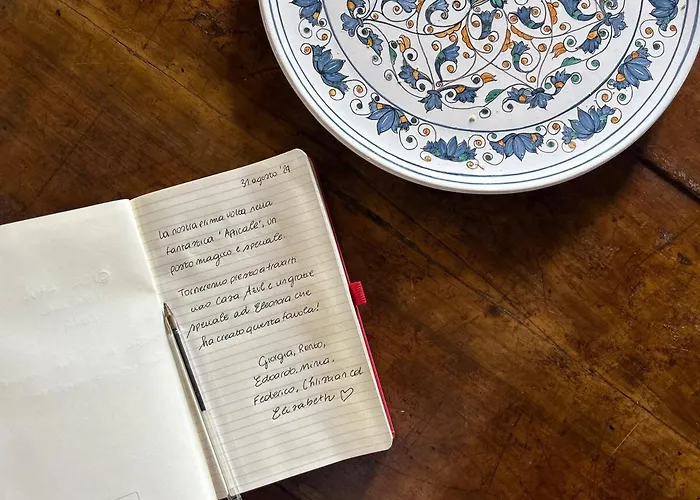 31 agosto '21
La nostra prima volta nella
fantastica "Apicale", un
posto magico e speciale.
Torneremo presto a trovarti
Casa Azul e un grazie
speciale ad Eleonora che
ha creato questa favola!
Giorgia, Renzo,
Edoardo, Mirna,
Federico, Christian ed
Elisabeth ♡